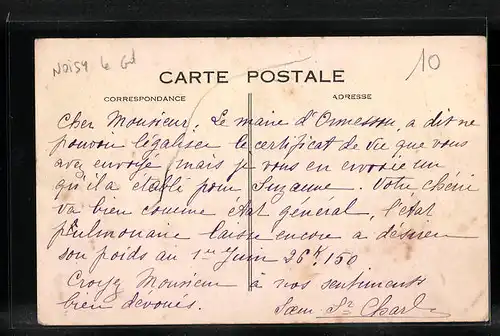 Noisy le Gd
10
CARTE POSTALE
CORRESPONDANCE
ADRESSE
Cher Monsieur. Le maire d'Ormesson, a dit ne
pouvoir légaliser le certificat de vie que vous
avez envoyé, mais je vous en envoie un
qu'il a établi pour Suzanne. Votre chérie
va bien comme état général, l'état
pulmonaire laisse encore a désirer
son poids au 1er Juin 26k,150
Croyez Monsieur à nos sentiments
bien dévoués.
Sœur St Charl